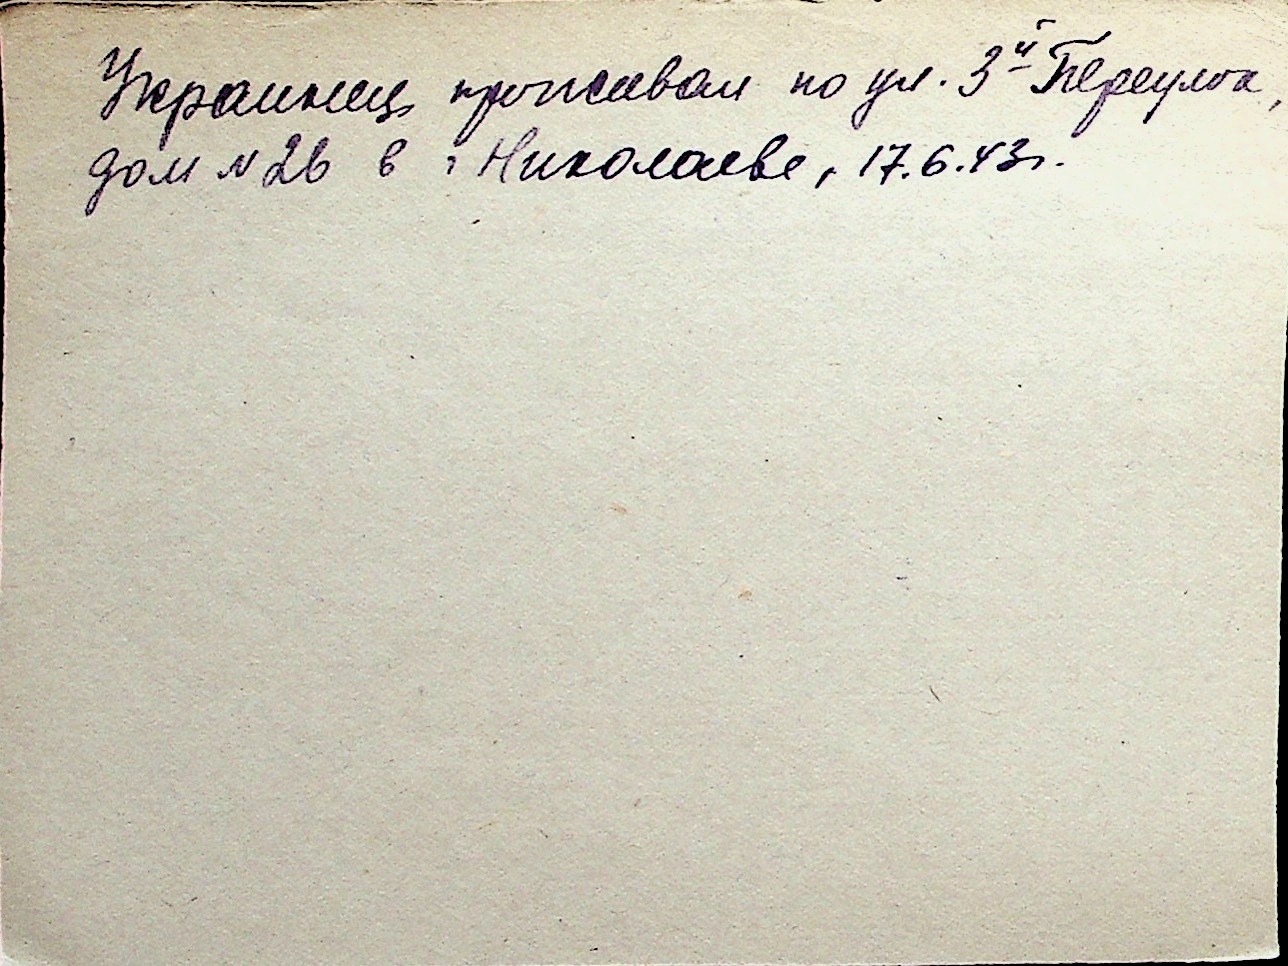 Украинец проживал по ул. 3й Переулок,
дом №26 в г Николаеве, 17.6.43г.